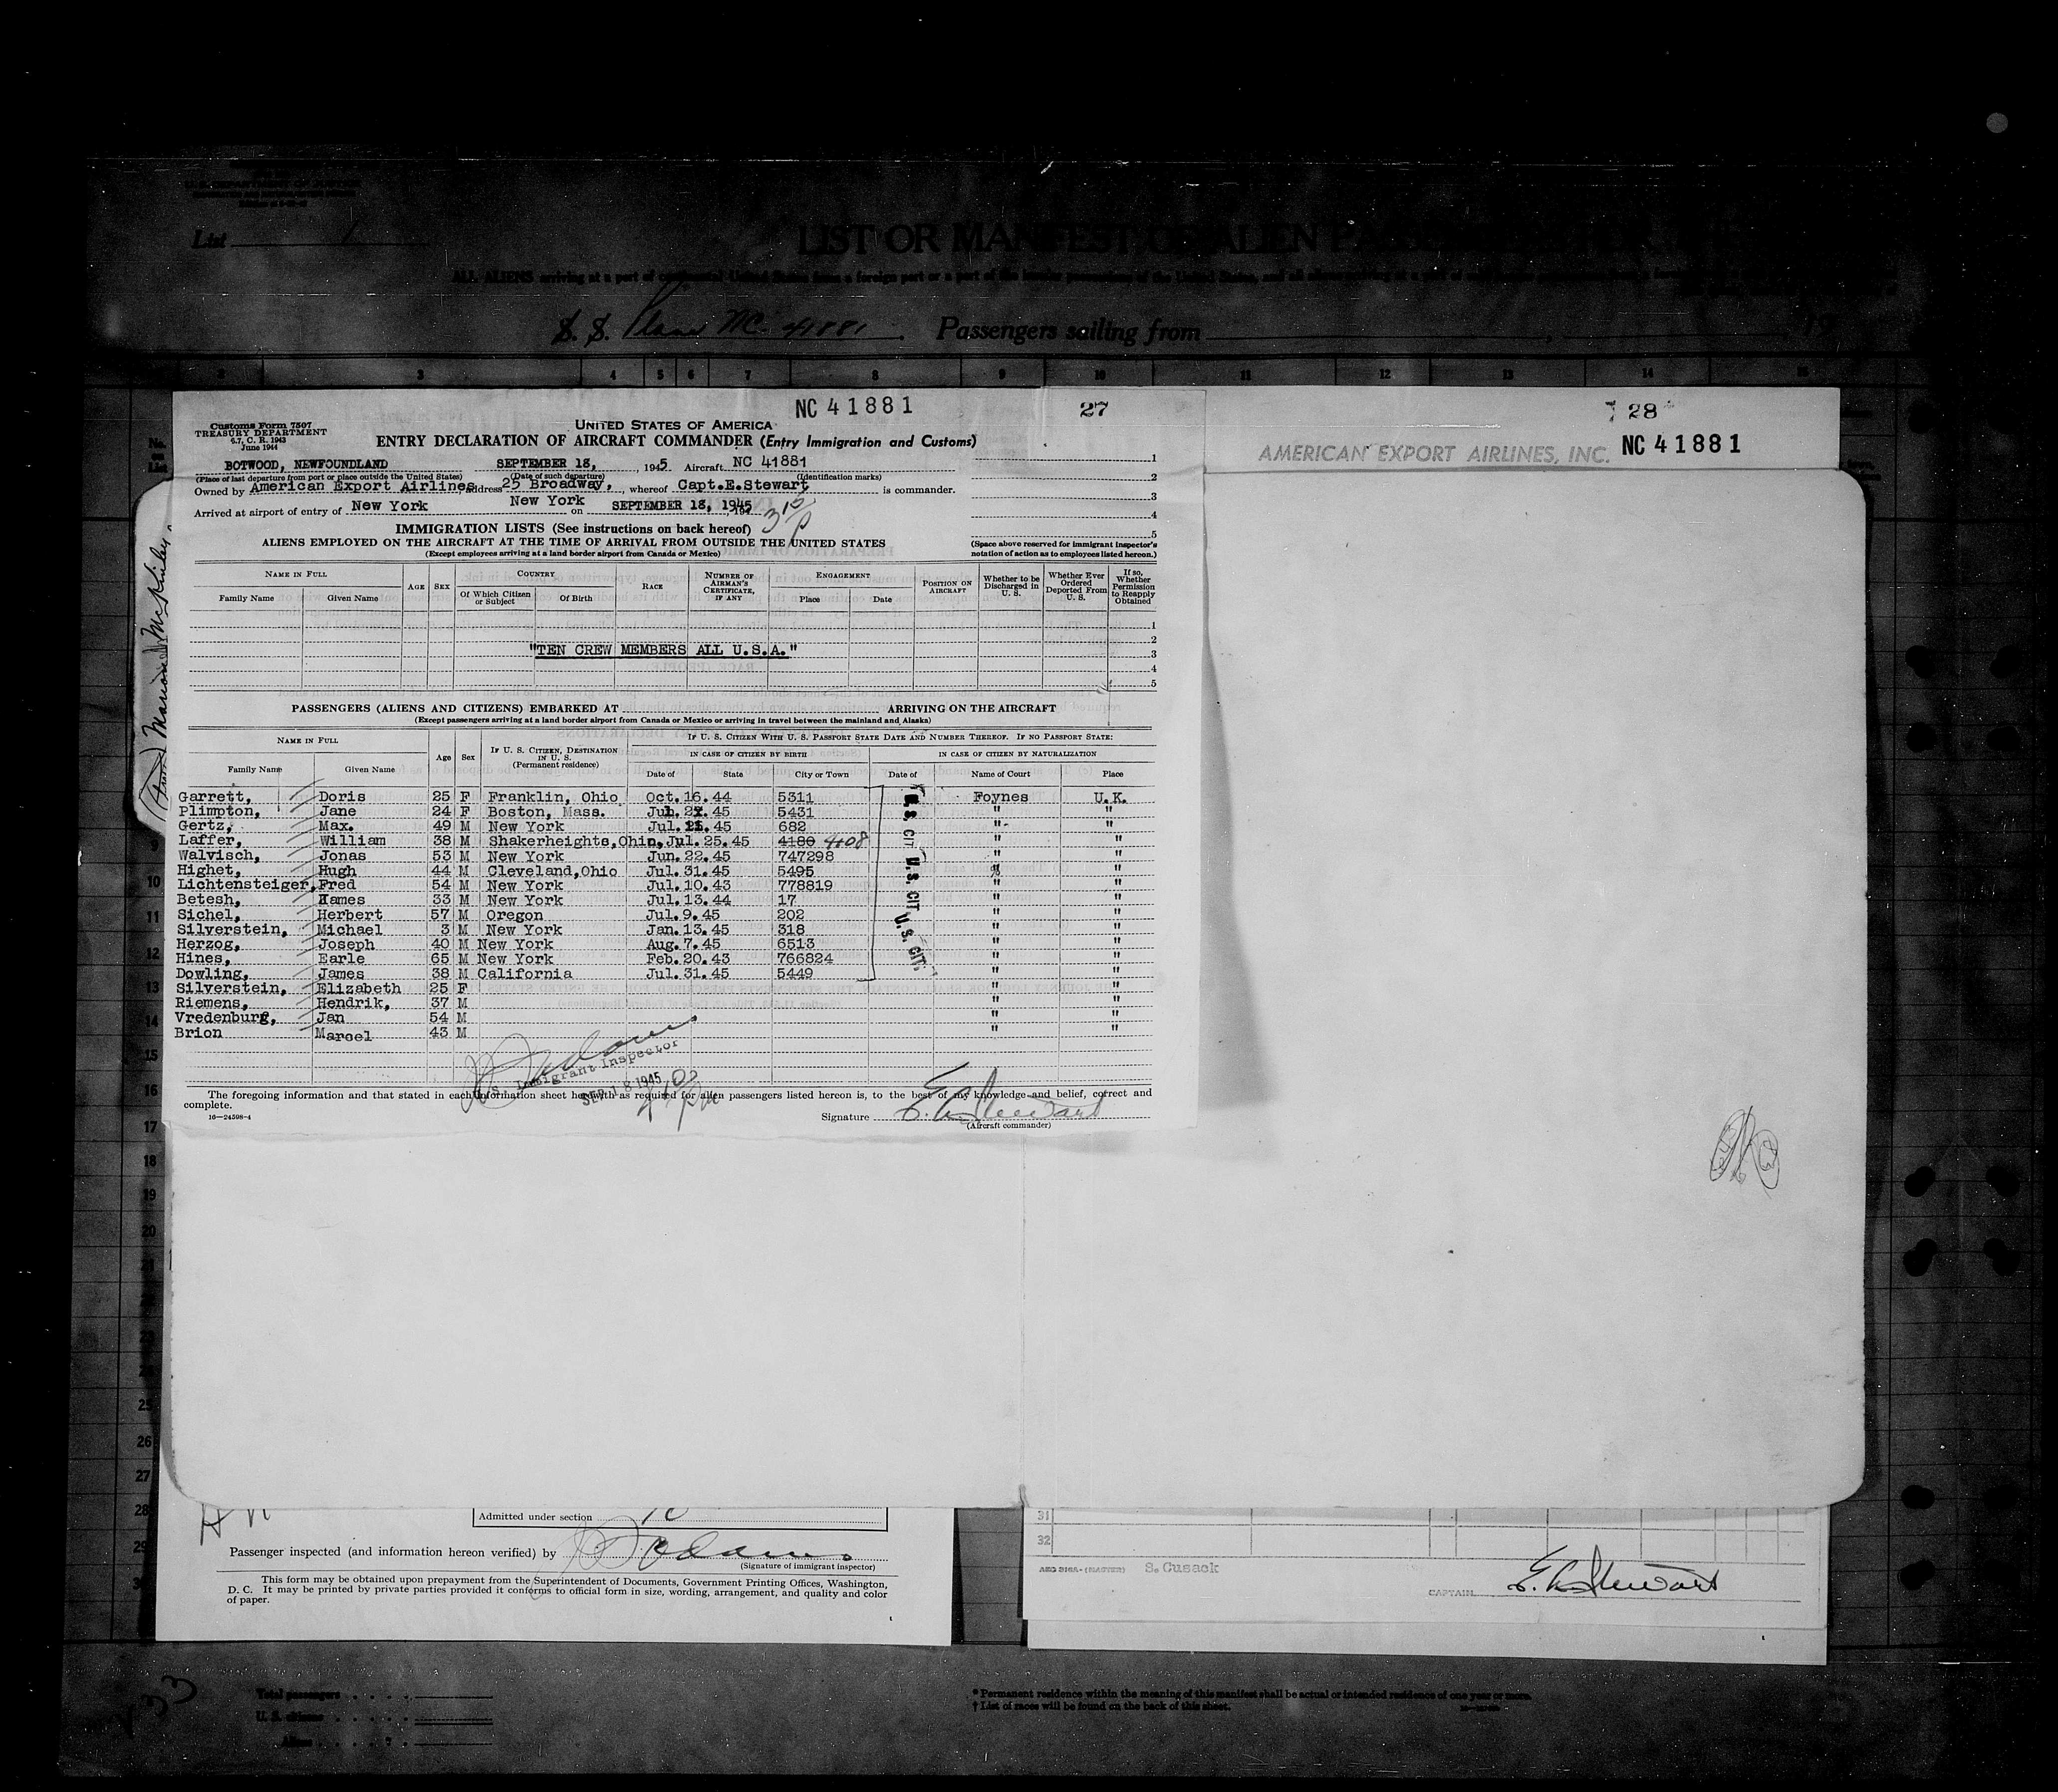 List 1
LIST OR MANIFEST OF ALIEN
ALL ALIENS arriving at a port of continental United States from a foreign port or a port of the insular possessions of the United States, and all aliens arriving at a port of
S. S. Plane NC. 41881. Passengers sailing from
2 3 4 5 6 7 8 9 10 11 12 13 14 15
NC 41881 27 28
AMERICAN EXPORT AIRLINES, INC. NC 41881
Customs Form 7507
TREASURY DEPARTMENT
6.7, C. R. 1943
June 1944
UNITED STATES OF AMERICA
ENTRY DECLARATION OF AIRCRAFT COMMANDER (Entry Immigration and Customs)
BOTWOOD, NEWFOUNDLAND SEPTEMBER 18, 1945 Aircraft NC 41881
(Place of last departure from port or place outside the United States) (Date of such departure) (Identification marks)
Owned by American Export Airlines address 25 Broadway, whereof Capt.E.Stewart is commander.
New York
Arrived at airport of entry of New York on SEPTEMBER 18, 1945 3 15 P
IMMIGRATION LISTS (See instructions on back hereof)
ALIENS EMPLOYED ON THE AIRCRAFT AT THE TIME OF ARRIVAL FROM OUTSIDE THE UNITED STATES
(Except employees arriving at a land border airport from Canada or Mexico)
1
2
3
4
5
(Space above reserved for immigrant inspector's
notation of action as to employees listed hereon.)
NAME IN FULL AGE SEX COUNTRY RACE NUMBER OF AIRMAN'S CERTIFICATE, IF ANY ENGAGEMENT POSITION ON AIRCRAFT Whether to be Discharged in U. S. Whether Ever Ordered Deported From U. S. If so, Whether Permission to Reapply Obtained
Family Name Given Name Of Which Citizen or Subject Of Birth Place Date
1
2
"TEN CREW MEMBERS ALL U.S.A." 3
4
5
PASSENGERS (ALIENS AND CITIZENS) EMBARKED AT ARRIVING ON THE AIRCRAFT
(Except passengers arriving at a land border airport from Canada or Mexico or arriving in travel between the mainland and Alaska)
NAME IN FULL Age Sex IF U. S. CITIZEN, DESTINATION IN U. S. (Permanent residence) IF U. S. CITIZEN WITH U. S. PASSPORT STATE DATE AND NUMBER THEREOF. IF NO PASSPORT STATE:
IN CASE OF CITIZEN BY BIRTH IN CASE OF CITIZEN BY NATURALIZATION
Family Name Given Name Date of State City or Town Date of Name of Court Place
Garrett, Doris 25 F Franklin, Ohio Oct.16.44 5311 Foynes U.K.
Plimpton, Jane 24 F Boston, Mass. 45 5431 " "
Gertz, Max. 49 M New York Jul. 45 682 " "
Laffer, William 38 M Shakerheights,Ohio, Jul.25.45 4180 4108 " "
Walvisch, Jonas 53 M New York Jun.22.45 747298 " "
Highet, Hugh 44 M Cleveland,Ohio Jul.31.45 5495 " "
Lichtensteiger, Fred 54 M New York Jul.10.43 778819 " "
Betesh, James 33 M New York Jul.13.44 17 " "
Sichel, Herbert 57 M Oregon Jul.9.45 202 " "
Silverstein, Michael 3 M New York Jan.13.45 318 " "
Herzog, Joseph 40 M New York Aug.7.45 6513 " "
Hines, Earle 65 M New York Feb.20.43 766824 " "
Dowling, James 38 M California Jul.31.45 5449 " "
Silverstein, Elizabeth 25 F " "
Riemens, Hendrik, 37 M " "
Vredenburg, Jan 54 M " "
Brion Marcel 43 M " "
U.S. CIT. U.S. CIT. U.S. CIT.
Adams
U.S. Immigrant Inspector
SEP 18 1945
The foregoing information and that stated in each information sheet herewith as required for alien passengers listed hereon is, to the best of my knowledge and belief, correct and
complete.
16—24598-4
Signature E. A. Stewart
(Aircraft commander)
Marion McKinley
9
10
11
12
13
14
15
16
17
18
19
20
21
22
23
24
25
26
27
28
29
Admitted under section
Passenger inspected (and information hereon verified) by Adams
(Signature of immigrant inspector)
This form may be obtained upon prepayment from the Superintendent of Documents, Government Printing Offices, Washington,
D. C. It may be printed by private parties provided it conforms to official form in size, wording, arrangement, and quality and color
of paper.
31
32
AEO 310A-(MASTER) S. Cusack
CAPTAIN E. A. Stewart
Total passengers
U. S. citizens
Aliens
233
* Permanent residence within the meaning of this manifest shall be actual or intended residence of one year or more.
† List of races will be found on the back of this sheet.